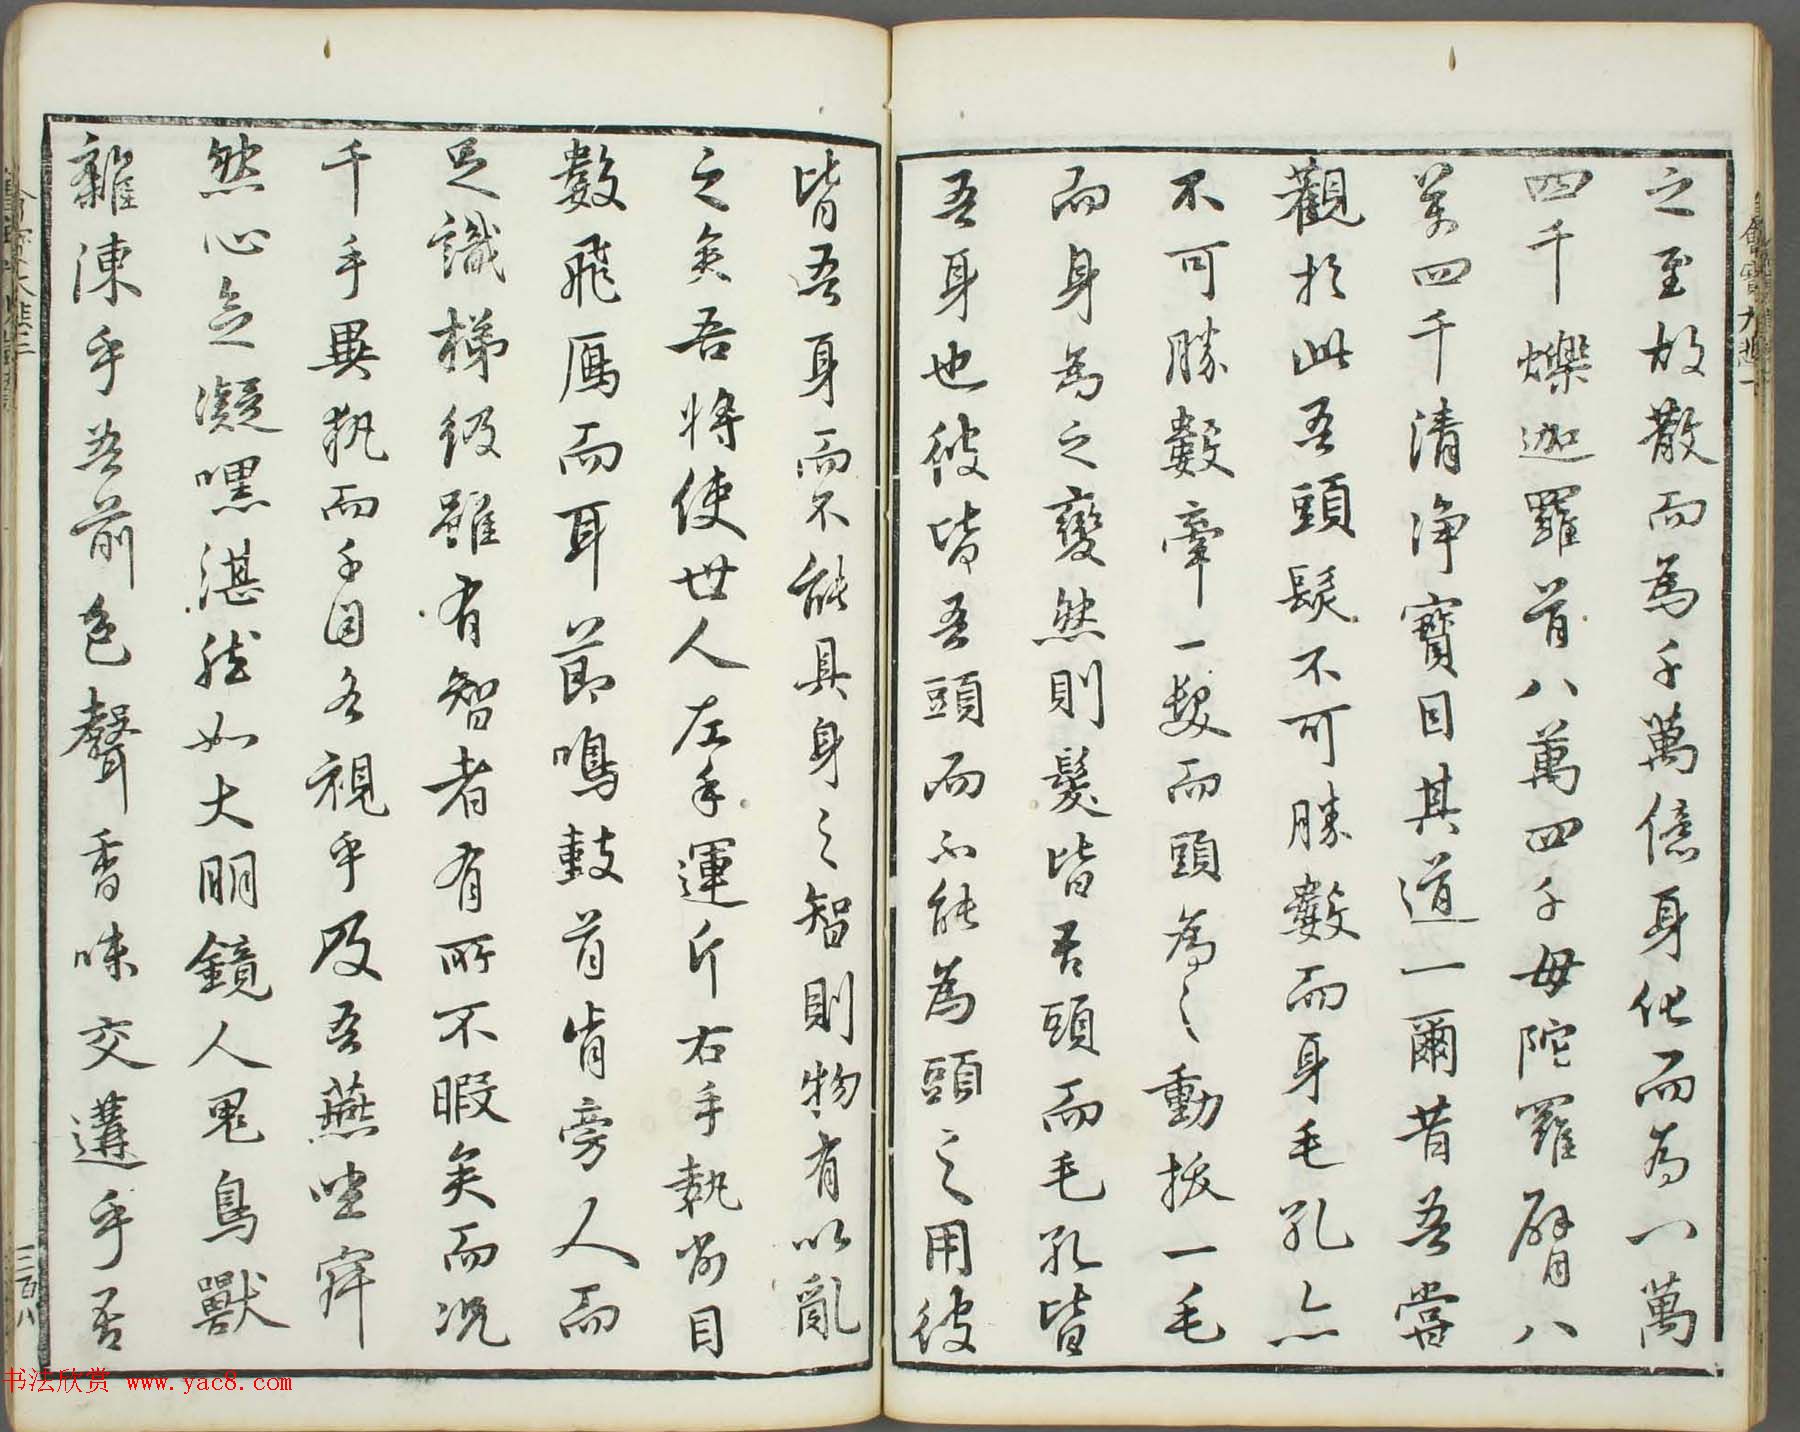 之至故散而為千萬億身化而為八萬
四千爍迦羅首八萬四千母陀羅臂八
萬四千清淨寶目其道一爾昔吾嘗
觀於此吾頭髮不可勝數而身毛孔亦
不可勝數牽一髮而頭為之動拔一毛
而身為之變然則髮皆吾頭而毛孔皆
吾身也彼皆吾頭而不能為頭之用彼
皆吾身而不能具身之智則物有以亂
之矣吾將使世人左手運斤右手執削目
數飛鴈而耳節鳴鼓首肯旁人而
足識梯級雖有智者有所不暇矣而況
千手異執而千目各視乎及吾燕坐寂
然心念凝嘿湛然如大明鏡人鬼鳥獸
雜陳乎吾前色聲香味交遘乎吾
三百八
书法欣赏 www.yac8.com